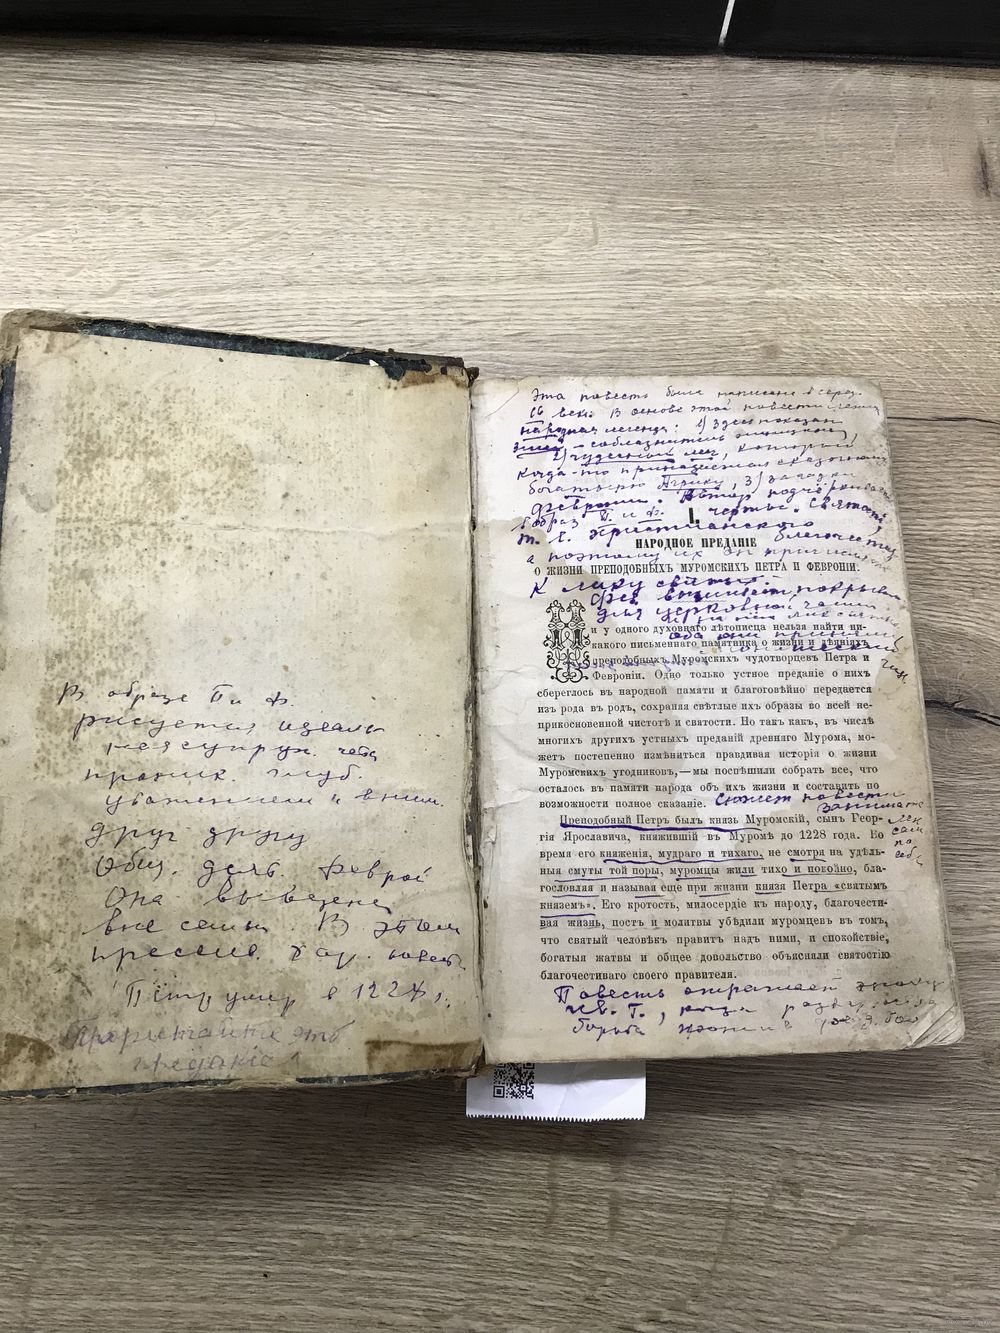 В образе П и Ф.
рисуется идеаль
ная супруж. чета
проник. глуб.
уважением и вним.
друг другу
Она выведена
вне семьи В этом
Петр умер в 122
Прочитайте это
предание
Эта повесть была написана в серед.
16 века В основе этой повести лежит
народная легенда: 1) Здесь показан
змей – соблазнитель женщин,
2) чудесный меч, который
когда-то принадлежал сказочному
богатырю Агрику, 3) загадки
Февронии. Автор подчёркивает
в образ П. и Ф. черты святости,
т. е. христианского благочестия
а поэтому их он причисляет
к лику святых.
I.
НАРОДНОЕ ПРЕДАНІЕ
О ЖИЗНИ ПРЕПОДОБНЫХЪ МУРОМСКИХЪ ПЕТРА И ФЕВРОНІИ.
Фев. вышивает покрывало
для церковной чаши.
оба они приняли
монашеский
чин
Ни у одного духовнаго лѣтописца нельзя найти ни-
какого письменнаго памятника о жизни и дѣяніяхъ
преподобныхъ Муромскихъ чудотворцевъ Петра и
Февроніи. Одно только устное преданіе о нихъ
сбереглось въ народной памяти и благоговѣйно передается
изъ рода въ родъ, сохраняя свѣтлые ихъ образы во всей не-
прикосновенной чистотѣ и святости. Но такъ какъ, въ числѣ
многихъ другихъ устныхъ преданій древняго Мурома, мо-
жетъ постепенно измѣниться правдивая исторія о жизни
Муромскихъ угодниковъ,—мы поспѣшили собрать все, что
осталось въ памяти народа объ ихъ жизни и составить по
возможности полное сказаніе. Сюжет повести
занимате
лен
сам
по
себе
Преподобный Петръ былъ князь Муромскій, сынъ Геор-
гія Ярославича, княжившій въ Муромѣ до 1228 года. Во
время его княженія, мудраго и тихаго, не смотря на удѣль-
ныя смуты той поры, муромцы жили тихо и покойно, бла-
гословляя и называя еще при жизни князя Петра «святымъ
княземъ». Его кротость, милосердіе къ народу, благочести-
вая жизнь, постъ и молитвы убѣдили муромцевъ въ томъ,
что святый человѣкъ правитъ надъ ними, и спокойствіе,
богатыя жатвы и общее довольство объясняли святостію
благочестиваго своего правителя.
Повесть отражает эпоху
Ив. Г., когда
борьба против боя